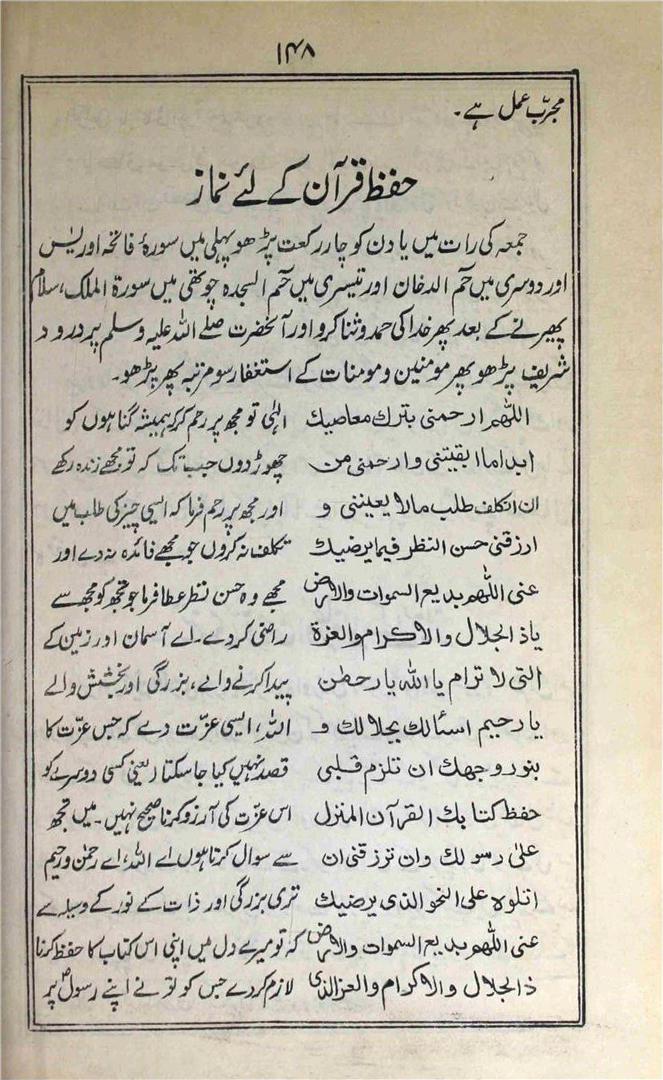 ۱۴۸
مجرّب عمل ہے۔
حفظ قرآن کے لئے نماز
جمعہ کی رات میں یا دن کو چار رکعت پڑھو پہلی میں سورۂ فاتحہ اور یٰس
اور دوسری میں حٓم الدخان اور تیسری میں حٓم السجدہ چوتھی میں سورۃ الملک، سلام
پھیرنے کے بعد پھر خدا کی حمد و ثنا کرو اور آنحضرت صلے اللہ علیہ وسلم پر درود
شریف پڑھو پھر مومنین و مومنات کے استغفار سو مرتبہ پھر پڑھو۔
اللھم ارحمنی بترك معاصيك
ابدا ما ابقيتنی وارحمنی من
ان اتكلف طلب مالا يعيننی و
ارزقنی حسن النظر فيما يرضيك
عنی اللھم بديع السموات والارض
ياذ الجلال والاكرام والعزة
التی لا ترام يا الله يا رحمٰن
يا رحيم اسئالك بجلالك و
بنور وجهك ان تلزم قلبی
حفظ كتابك القرآن المنزل
علیٰ رسولك وان ترزقنی ان
اتلوه علی النحو الذی يرضيك
عنی اللھم بديع السموات والارض
ذالجلال والاكرام والعز الذی
الٰہی تو مجھ پر رحم کر کہ ہمیشہ گناہوں کو
چھوڑ دوں جب تک کہ تو مجھے زندہ رکھے
اور مجھ پر رحم فرما کہ ایسی چیز کی طلب میں
تکلف نہ کروں جو مجھے فائدہ نہ دے اور
مجھے وہ حسن نظر عطا فرما جو تجھ کو مجھ سے
راضی کردے۔ اے آسمان اور زمین کے
پیدا کرنے والے، بزرگی اور بخشش والے
اللہ، ایسی عزّت دے کہ جس عزّت کا
قصد نہیں کیا جا سکتا (یعنی کسی دوسرے کو
اس عزّت کی آرزو کرنا صحیح نہیں۔ میں تجھ
سے سوال کرتا ہوں اے اللہ، اے رحمٰن و رحیم
تری بزرگی اور ذات کے نور کے وسیلہ سے
کہ تو میرے دل میں اپنی اس کتاب کا حفظ کرنا
لازم کردے جس کو تو نے اپنے رسولؐ پر